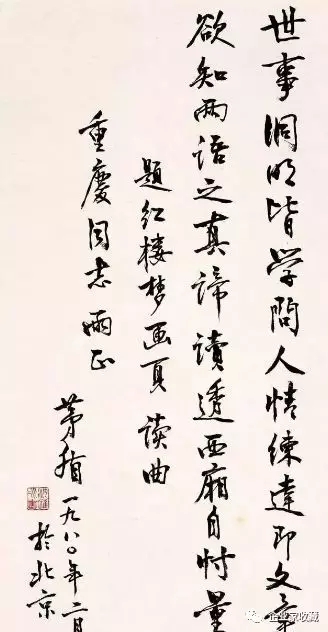 世事洞明皆学問人情練達即文章
欲知两語之真諦讀透西廂自忖量
題红楼梦画頁 讀曲
重慶同志 正
茅盾 一九八〇年二月
於北京
企业家收藏